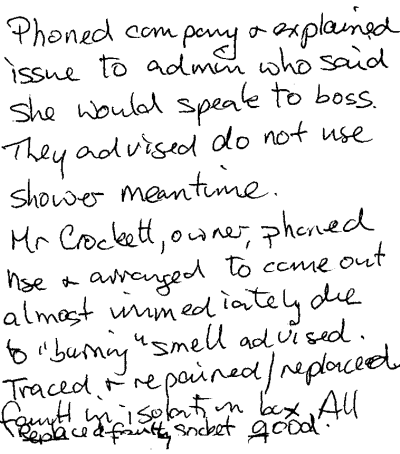 Phoned company & explained
issue to admin who said
she would speak to boss.
They advised do not use
shower meantime.
Mr Crockett, owner, phoned
hse & arranged to come out
almost immediately due
to "burning" smell advised.
Traced & repaired/replaced
fault in isolation box. All
Replaced faulty socket good.